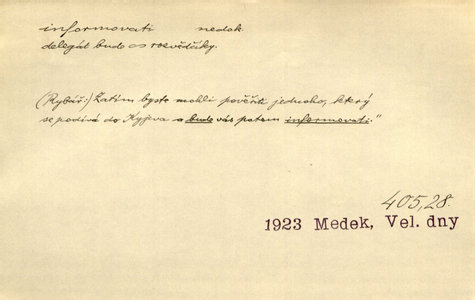 informovati nedok
delegát bude os rozvědčíky.
(Rybář:) Zatím byste mohli pověřiti jednoho, který
se podívá do Kyjeva a bude vás potom informovati."
405,28.
1923 Medek, Vel. dny